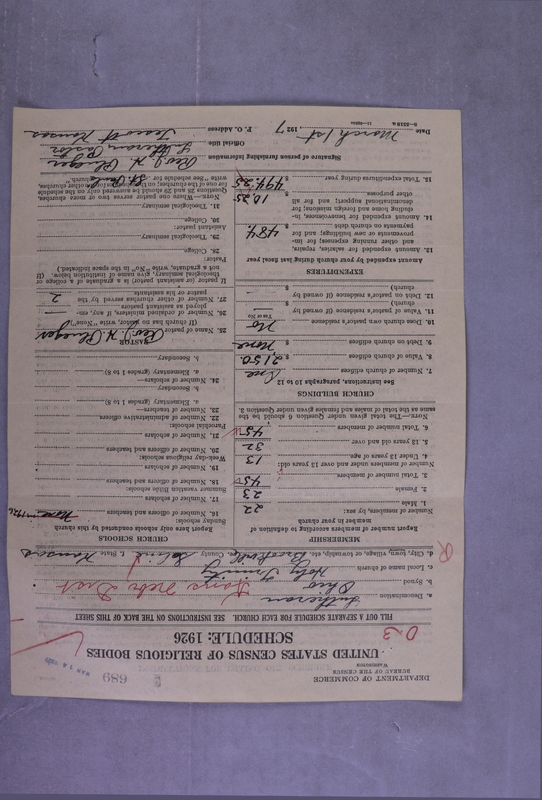 DEPARTMENT OF COMMERCE
BUREAU OF THE CENSUS
WASHINGTON
689
UNITED STATES CENSUS OF RELIGIOUS BODIES
SCHEDULE: 1926
FILL OUT A SEPARATE SCHEDULE FOR EACH CHURCH. SEE INSTRUCTIONS ON THE BACK OF THIS SHEET
a. Denomination Lutheran
b. Synod Ohio
c. Local name of church Holy Trinity
d. City, town, village, or township, etc. Brookville County Saline State Kansas
MEMBERSHIP
Report number of members according to definition of
member in your church
Number of members, by sex:
1. Male 22
2. Female 23
3. Total number of members 45
Number of members under and over 13 years old:
4. Under 13 years of age 13
5. 13 years old and over 32
6. Total number of members 45
NOTE.—The total given under Question 6 should be the
same as the total of males and females given under Question 3.
CHURCH BUILDINGS
See instructions, paragraphs 10 to 12
7. Number of church edifices One
8. Value of church edifices $ 2,150.
9. Debt on church edifices $ None
10. Does church own pastor's residence No
Yes or No
11. Value of pastor's residence (if owned by
church) $
12. Debt on pastor's residence (if owned by
church) $
EXPENDITURES
Amount expended by your church during last fiscal year
13. Amount expended for salaries, repairs,
and other running expenses; for im-
provements or new buildings; and for
payments on church debt $ 484.
14. Amount expended for benevolences, in-
cluding home and foreign missions; for
denominational support; and for all
other purposes $ 10.25
15. Total expenditures during year $ 494.25
CHURCH SCHOOLS
Report here only schools conducted by this church
Sunday schools:
16. Number of officers and teachers
17. Number of scholars
Summer vacation Bible schools:
18. Number of officers and teachers
19. Number of scholars
Week-day religious schools:
20. Number of officers and teachers
21. Number of scholars
Parochial schools:
22. Number of administrative officers
23. Number of teachers—
a. Elementary (grades 1 to 8)
b. Secondary
24. Number of scholars—
a. Elementary (grades 1 to 8)
b. Secondary
PASTOR
25. Name of pastor Rev. J. H. Plueger
(If church has no pastor, write "None")
26. Number of ordained ministers, if any, em-
ployed as assistant pastors
27. Number of other churches served by the
pastor or his assistants 2
If pastor (or assistant pastor) is a graduate of a college or
theological seminary, give name of institution below. (If
not a graduate, write "No" in the space indicated.)
Pastor:
28. College
29. Theological seminary
Assistant pastor:
30. College
31. Theological seminary
NOTE.—Where one pastor serves two or more churches,
Questions 28 and 29 should be answered only on the schedule
for one of the churches; on the schedules for the other churches,
write "See schedule for St. Paul's church."
Signature of person furnishing information Rev. J. H. Plueger
Official title Lutheran Pastor
Date March 1st, 1927 P. O. Address Tescott Kansas